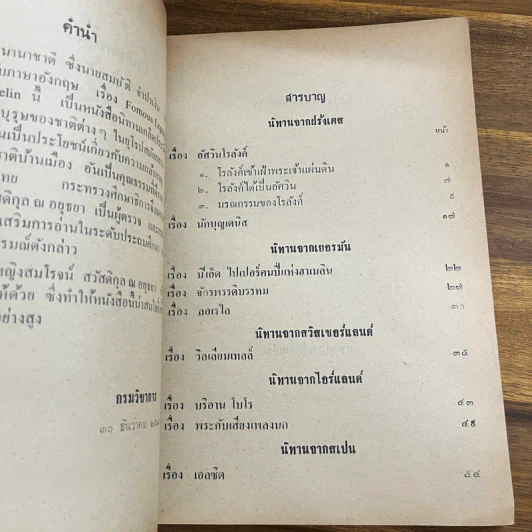 คำนำ
นานาชาติ ซึ่งนายสมบัติ จำปาเงิน
ภาษาอังกฤษ เรื่อง Famous Legends
elin นี้ เป็นหนังสือนิทานเกร็ดประวัติ
บุรุษของชาติต่างๆ ในยุโรปสมัยกลาง
นเป็นประโยชน์เกี่ยวกับความ
าติบ้านเมือง อันเป็นคุณธรรมที่ดี
ทย กระทรวงศึกษาธิการจึง
สดิกุล ณ อยุธยา เป็นผู้ตรวจ และ
เสริมการอ่านในระดับประถมศึกษา
รมณ์ดังกล่าว
หญิงสมโรจน์ สวัสดิกุล ณ อยุธยา
ด้ด้วย ซึ่งทำให้หนังสือนี้น่าสนใจ
อย่างสูง
กรมวิชาการ
๓๐ ธันวาคม
สารบาญ
นิทานจากฝรั่งเศส
หน้า
เรื่อง อัศวินโรลังค์
๑. โรลังค์เข้าเฝ้าพระเจ้าแผ่นดิน ๑
๒. โรลังค์ได้เป็นอัศวิน ๗
๓. มรณกรรมของโรลังค์ ๙
เรื่อง นักบุญเดนิส ๑๗
นิทานจากเยอรมัน
เรื่อง มีเฮ้ด ไปเปอร์คนปี่แห่งฮาเมลิน ๒๒
เรื่อง จักรพรรดิบรรทม ๒๗
เรื่อง ลอเรไล ๓๑
นิทานจากสวิสเซอร์แลนด์
เรื่อง วิลเลียมเทลล์ ๓๕
นิทานจากไอร์แลนด์
เรื่อง บริอาน โบโร ๔๓
เรื่อง พระกับเสียงเพลงนก ๔๕
นิทานจากสเปน
เรื่อง เอลซิด ๕๔